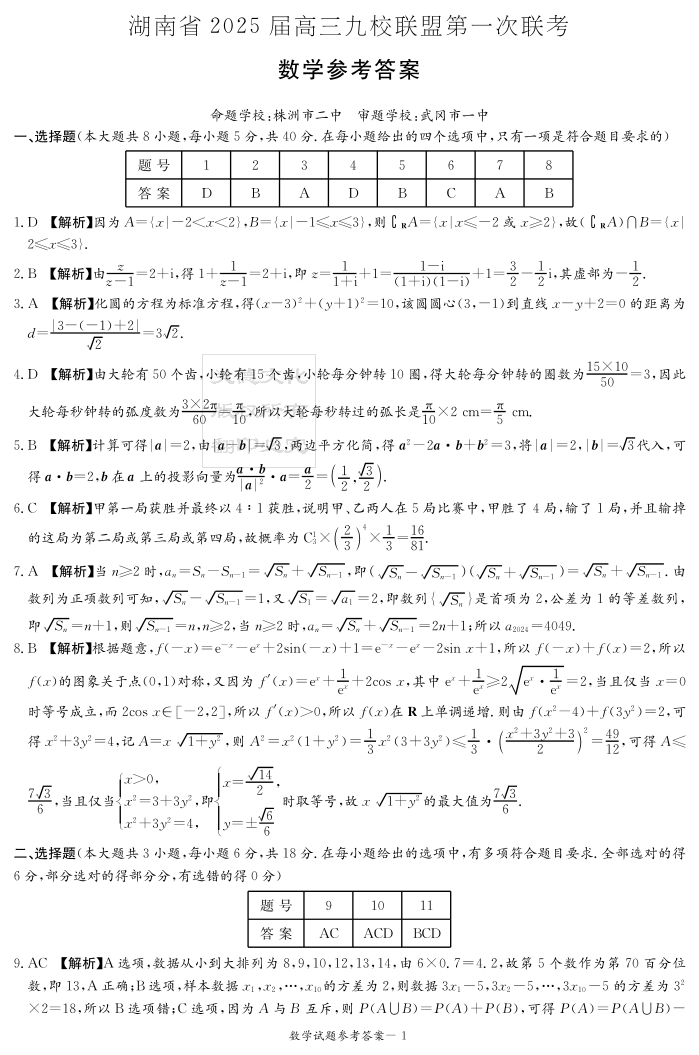 湖南省 2025 届高三九校联盟第一次联考
数学参考答案
命题学校:株洲市二中　审题学校:武冈市一中
一、选择题(本大题共 8 小题,每小题 5 分,共 40 分.在每小题给出的四个选项中,只有一项是符合题目要求的)
题 号 1 2 3 4 5 6 7 8
答 案 D B A D B C A B
1. D 【解析】因为 A={x|−2<x<2},B={x|−1≤x≤3},则∁_R A={x|x≤−2 或 x≥2},故(∁_R A)∩B={x|
2≤x≤3}.
2. B 【解析】由 z/(z−1)=2+i,得 1+1/(z−1)=2+i,即 z=1/(1+i)+1=(1−i)/((1+i)(1−i))+1=3/2−1/2 i,其虚部为−1/2.
3. A 【解析】化圆的方程为标准方程,得(x−3)²+(y+1)²=10,该圆圆心(3,−1)到直线 x−y+2=0 的距离为
d=|3−(−1)+2|/√2=3√2.
4. D 【解析】由大轮有 50 个齿,小轮有 15 个齿,小轮每分钟转 10 圈,得大轮每分钟转的圈数为 (15×10)/50=3,因此
大轮每秒钟转的弧度数为 (3×2π)/60=π/10,所以大轮每秒转过的弧长是 π/10×2 cm=π/5 cm.
5. B 【解析】计算可得|a|=2,由|a−b|=√3,两边平方化简,得 a²−2a·b+b²=3,将|a|=2,|b|=√3代入,可
得 a·b=2,b 在 a 上的投影向量为 (a·b)/|a|²·a=a/2=(1/2,√3/2).
6. C 【解析】甲第一局获胜并最终以 4∶1 获胜,说明甲、乙两人在 5 局比赛中,甲胜了 4 局,输了 1 局,并且输掉
的这局为第二局或第三局或第四局,故概率为 C₃¹×(2/3)⁴×1/3=16/81.
7. A 【解析】当 n≥2 时,aₙ=Sₙ−Sₙ₋₁=√Sₙ+√Sₙ₋₁,即(√Sₙ−√Sₙ₋₁)(√Sₙ+√Sₙ₋₁)=√Sₙ+√Sₙ₋₁.由
数列为正项数列可知,√Sₙ−√Sₙ₋₁=1,又√S₁=√a₁=2,即数列{√Sₙ}是首项为 2,公差为 1 的等差数列,
即√Sₙ=n+1,则√Sₙ₋₁=n,n≥2,当 n≥2 时,aₙ=√Sₙ+√Sₙ₋₁=2n+1;所以 a₂₀₂₄=4049.
8. B 【解析】根据题意,f(−x)=e⁻ˣ−eˣ+2sin(−x)+1=e⁻ˣ−eˣ−2sin x+1,所以 f(−x)+f(x)=2,所以
f(x)的图象关于点(0,1)对称,又因为 f′(x)=eˣ+1/eˣ+2cos x,其中 eˣ+1/eˣ≥2√(eˣ·1/eˣ)=2,当且仅当 x=0
时等号成立,而 2cos x∈[−2,2],所以 f′(x)>0,所以 f(x)在 R 上单调递增.则由 f(x²−4)+f(3y²)=2,可
得 x²+3y²=4,记 A=x√(1+y²),则 A²=x²(1+y²)=1/3 x²(3+3y²)≤1/3·((x²+3y²+3)/2)²=49/12,可得 A≤
7√3/6,当且仅当{x>0, x²=3+3y², x²+3y²=4,即{x=√14/2, y=±√6/6 时取等号,故 x√(1+y²)的最大值为7√3/6.
二、选择题(本大题共 3 小题,每小题 6 分,共 18 分.在每小题给出的选项中,有多项符合题目要求.全部选对的得
6 分,部分选对的得部分分,有选错的得 0 分)
题 号 9 10 11
答 案 AC ACD BCD
9. AC 【解析】A 选项,数据从小到大排列为 8,9,10,12,13,14,由 6×0.7=4.2,故第 5 个数作为第 70 百分位
数,即 13,A 正确;B 选项,样本数据 x₁,x₂,⋯,x₁₀的方差为 2,则数据 3x₁−5,3x₂−5,⋯,3x₁₀−5 的方差为 3²
×2=18,所以 B 选项错;C 选项,因为 A 与 B 互斥,则 P(A∪B)=P(A)+P(B),可得 P(A)=P(A∪B)−
数学试题参考答案－1